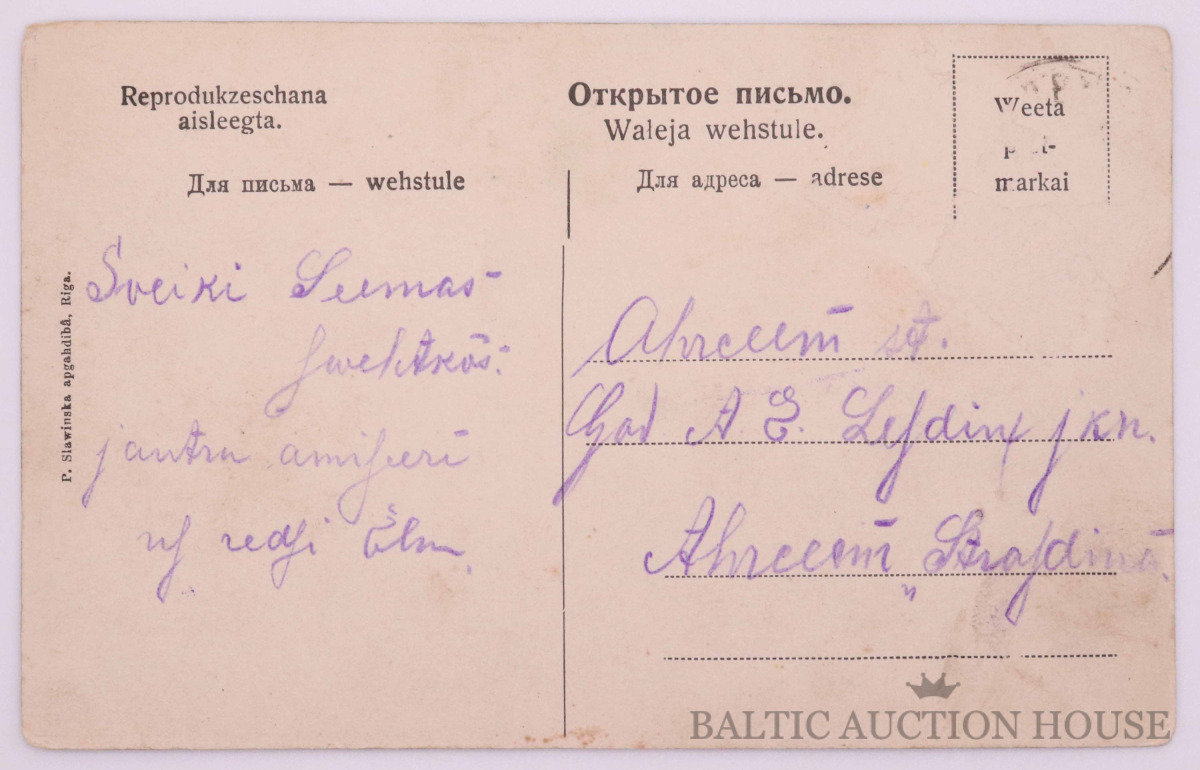 Reprodukzeschana
aisleegta.
Открытое письмо.
Waļeja wehstule.
Weeta
markai
Для письма — wehstule
Для адреса — adrese
P. Slawinska apgahdibâ, Riga.
Sveiki Seemas
swehtkôs.
jautru
us redsi
Ahrceem st.
A E. Lesdiņ jkn.
Ahrceem „Strasdiņâ
BALTIC AUCTION HOUSE